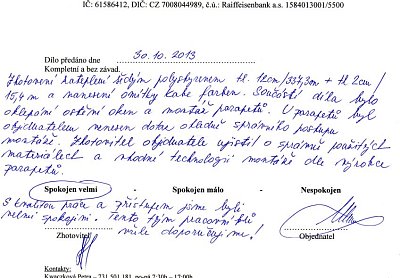 IČ: 61586412, DIČ: CZ 7008044989, č.ú.: Raiffeisenbank a.s. 1584013001/5500
Dílo předáno dne 30.10.2013
Kompletní a bez závad.
Zhotovení zateplení šedým polystyrenem tl. 12cm/337,3m + tl 2cm/
15,4m a nanesení omítky Kabe farben. Součástí díla bylo
oklepání ostění oken a montáž parapetů. U parapetů byl
objednatelem vznesen dotaz ohledně správného postupu
montáže. Zhotovitel objednatele ujistil o správně použitých
materiálech a vhodné technologii montáže dle výrobce
parapetů.
Spokojen velmi - Spokojen málo - Nespokojen
S kvalitou práce a přístupem jsme byli
velmi spokojeni. Tento tým pracovníků
vřele doporučujeme!
Zhotovitel Objednatel
Kontakty: